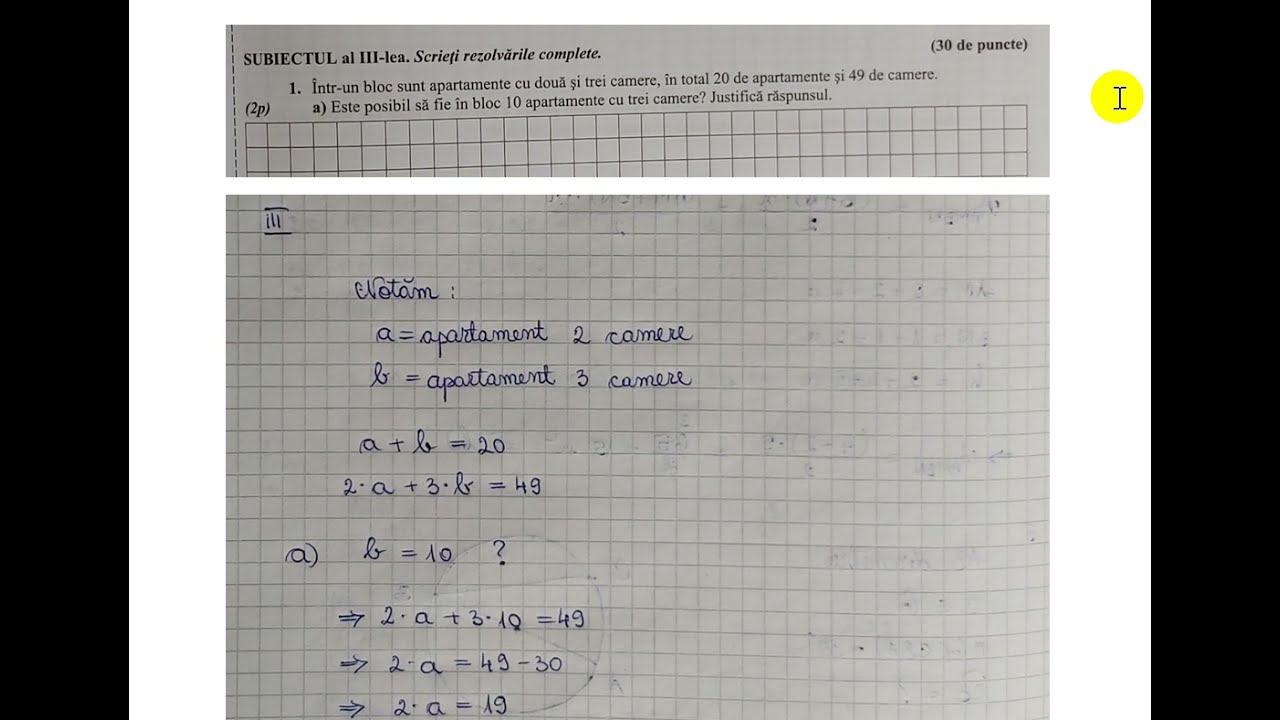 (30 de puncte)
SUBIECTUL al III-lea. Scrieți rezolvările complete.
1. Într-un bloc sunt apartamente cu două și trei camere, în total 20 de apartamente și 49 de camere.
(2p) a) Este posibil să fie în bloc 10 apartamente cu trei camere? Justifică răspunsul.
III
Notăm :
a = apartament 2 camere
b = apartament 3 camere
a + b = 20
2·a + 3·b = 49
a) b = 10 ?
⇒ 2·a + 3·10 = 49
⇒ 2·a = 49 - 30
⇒ 2·a = 19